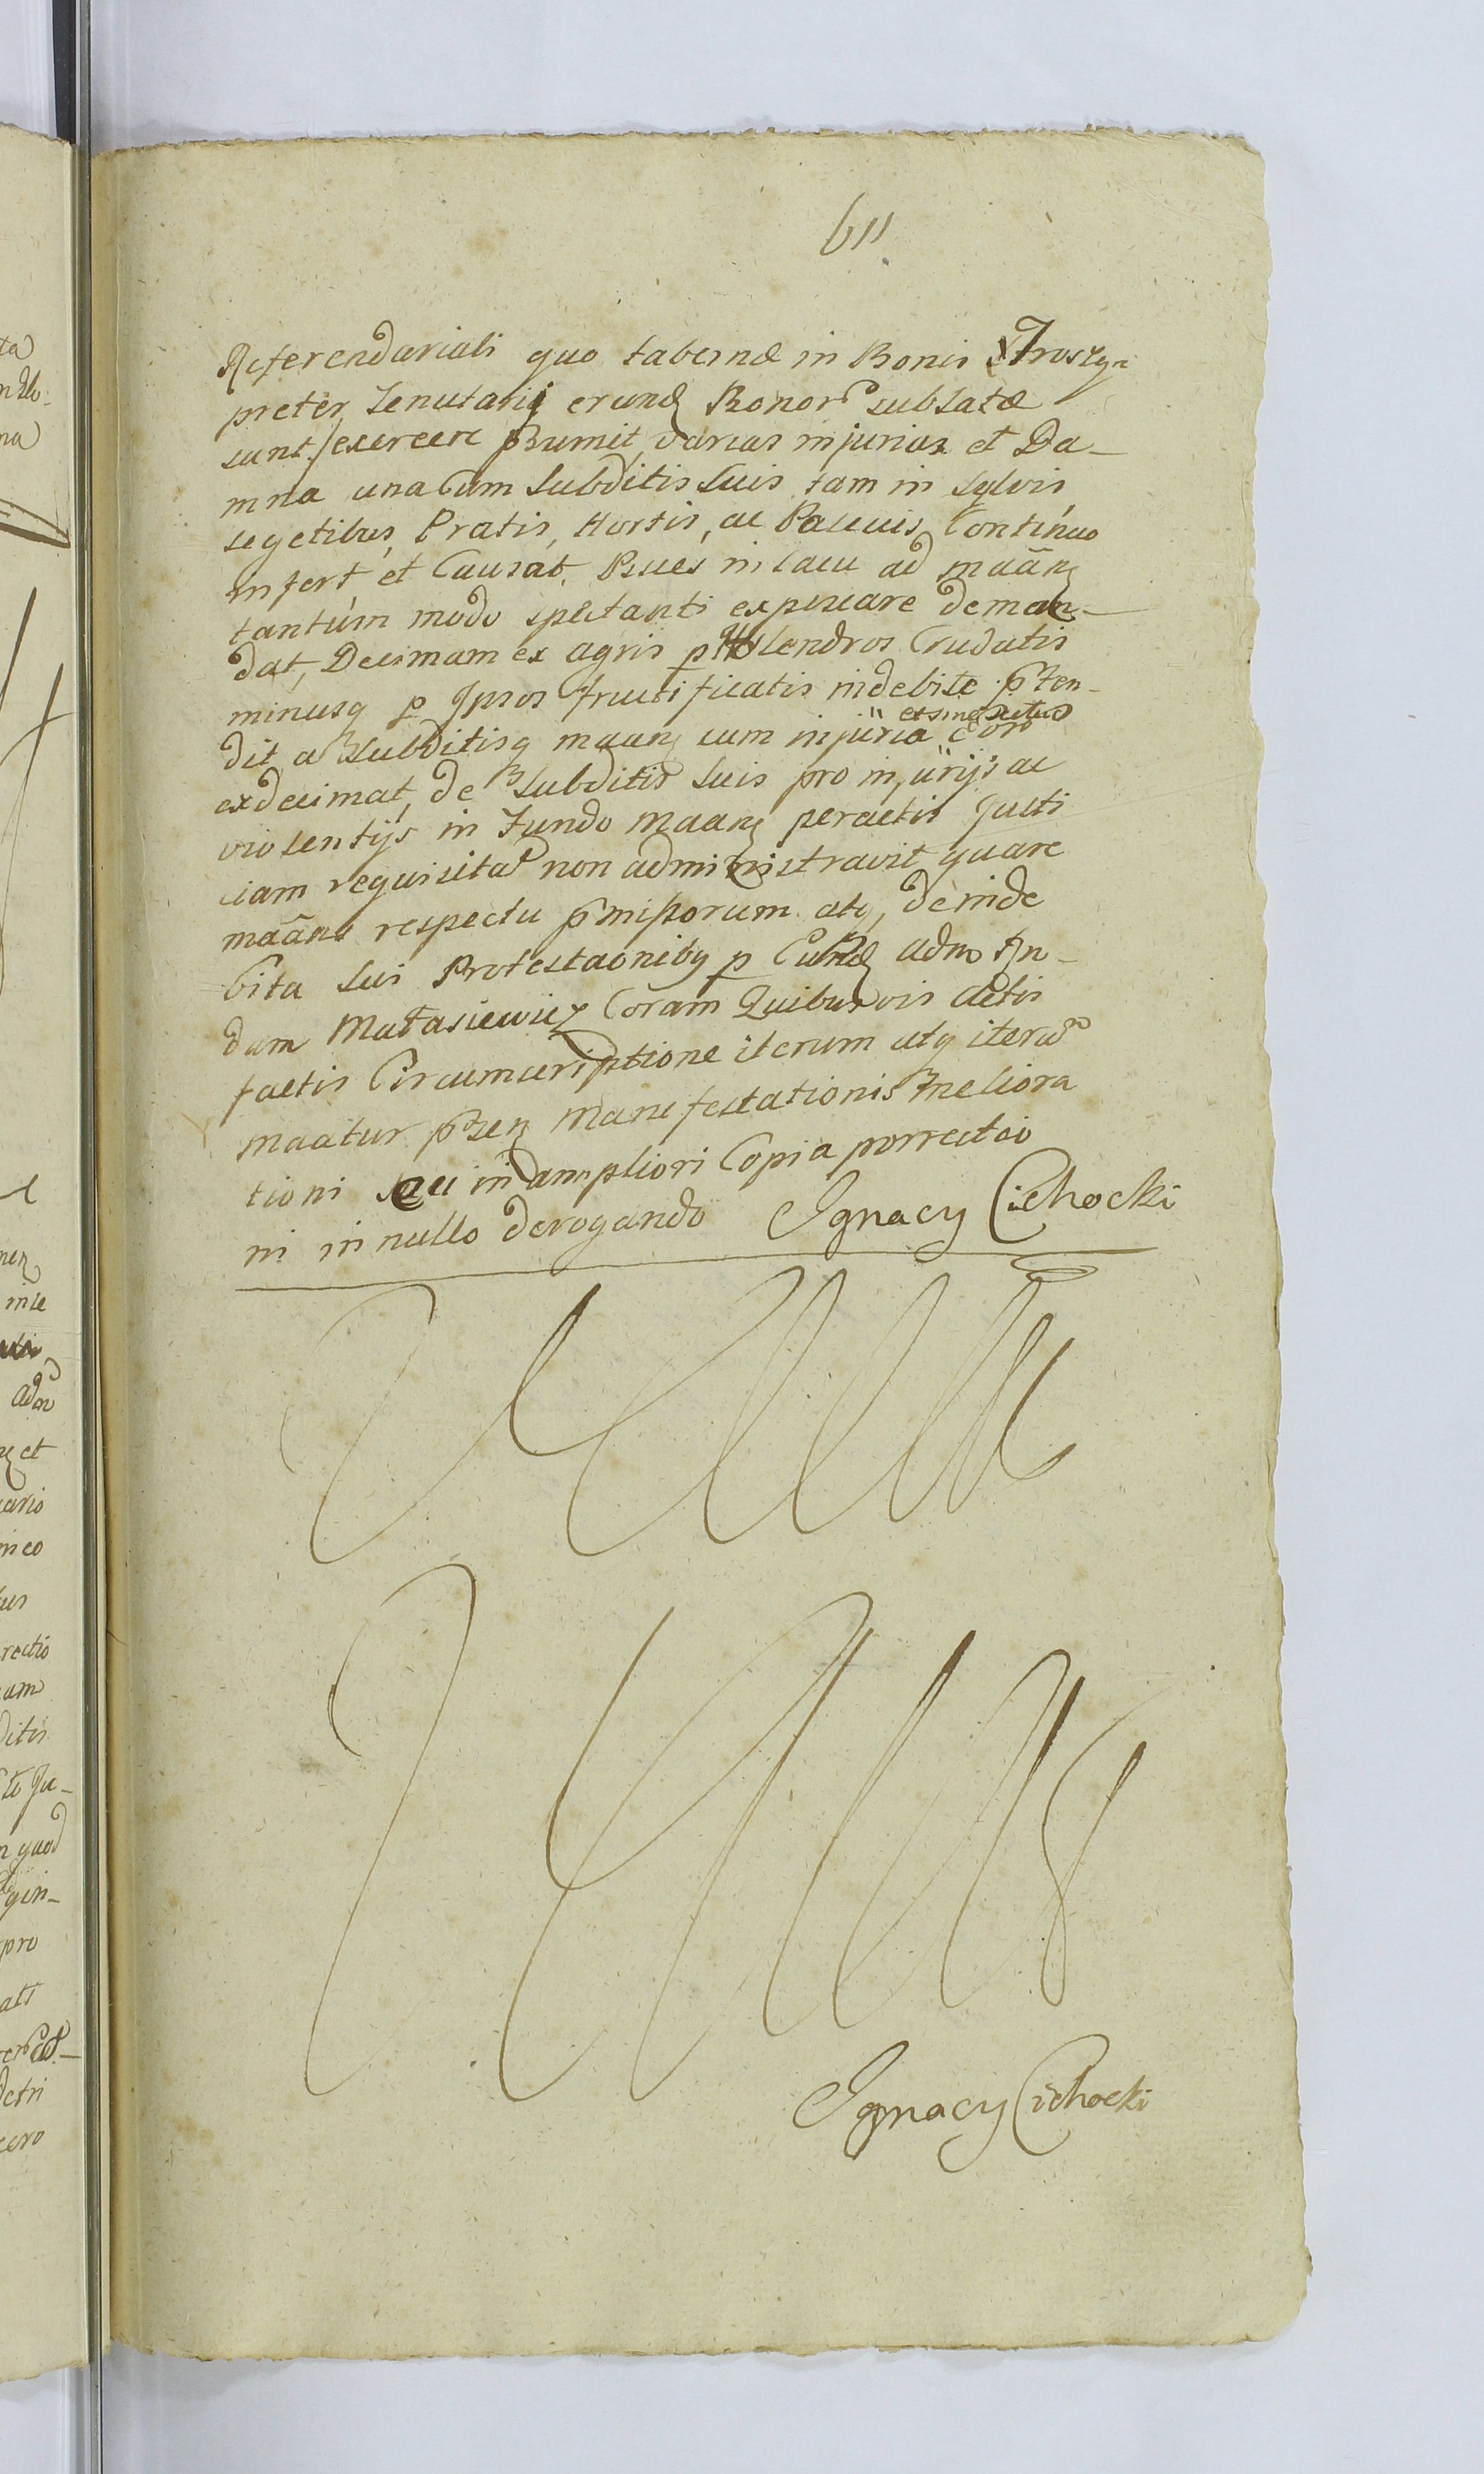 611
Referendariali quo tabernæ in Bonis Trostyn
preter Tenutarij erund Bonor sublatæ
sunt / exercere psumit, varias injurias et Da-
mna una Cum Subditis Suis tam in Sylvis
segetibus, Pratis, Hortis, ac Pascuis, Continuo
infert et Causat, Psces in lacu ad maan
tantùm modo spectanti expiscare deman-
dat, Decimam ex agris p Holendros Crudatis
minusq p Ipsos fructificatis indebite pten-
dit a Subditisq maan cum injüria eor
et sine
exdecimat, de Subditis suis pro injürijs ac
violentijs in Fundo maan peractis Justi
ciam requisita non administravit quare
maans respectu pmissorum atq, de inde
bita sui Protestaonibq p Eund adm Fun-
dum Matasiewicz Coram Quibusvis Actis
factis Circumscriptione iterum atq iteru
maatur psen Manifestationis meliora
tioni seu in ampliori Copia porrectio
ni in nullo derogando Ignacy Cichocki
Ignacy Cichocki
ta
na
inse
adm
et
ario
in eo
rectio
am
ditis
Ju-
quod
gin-
pro